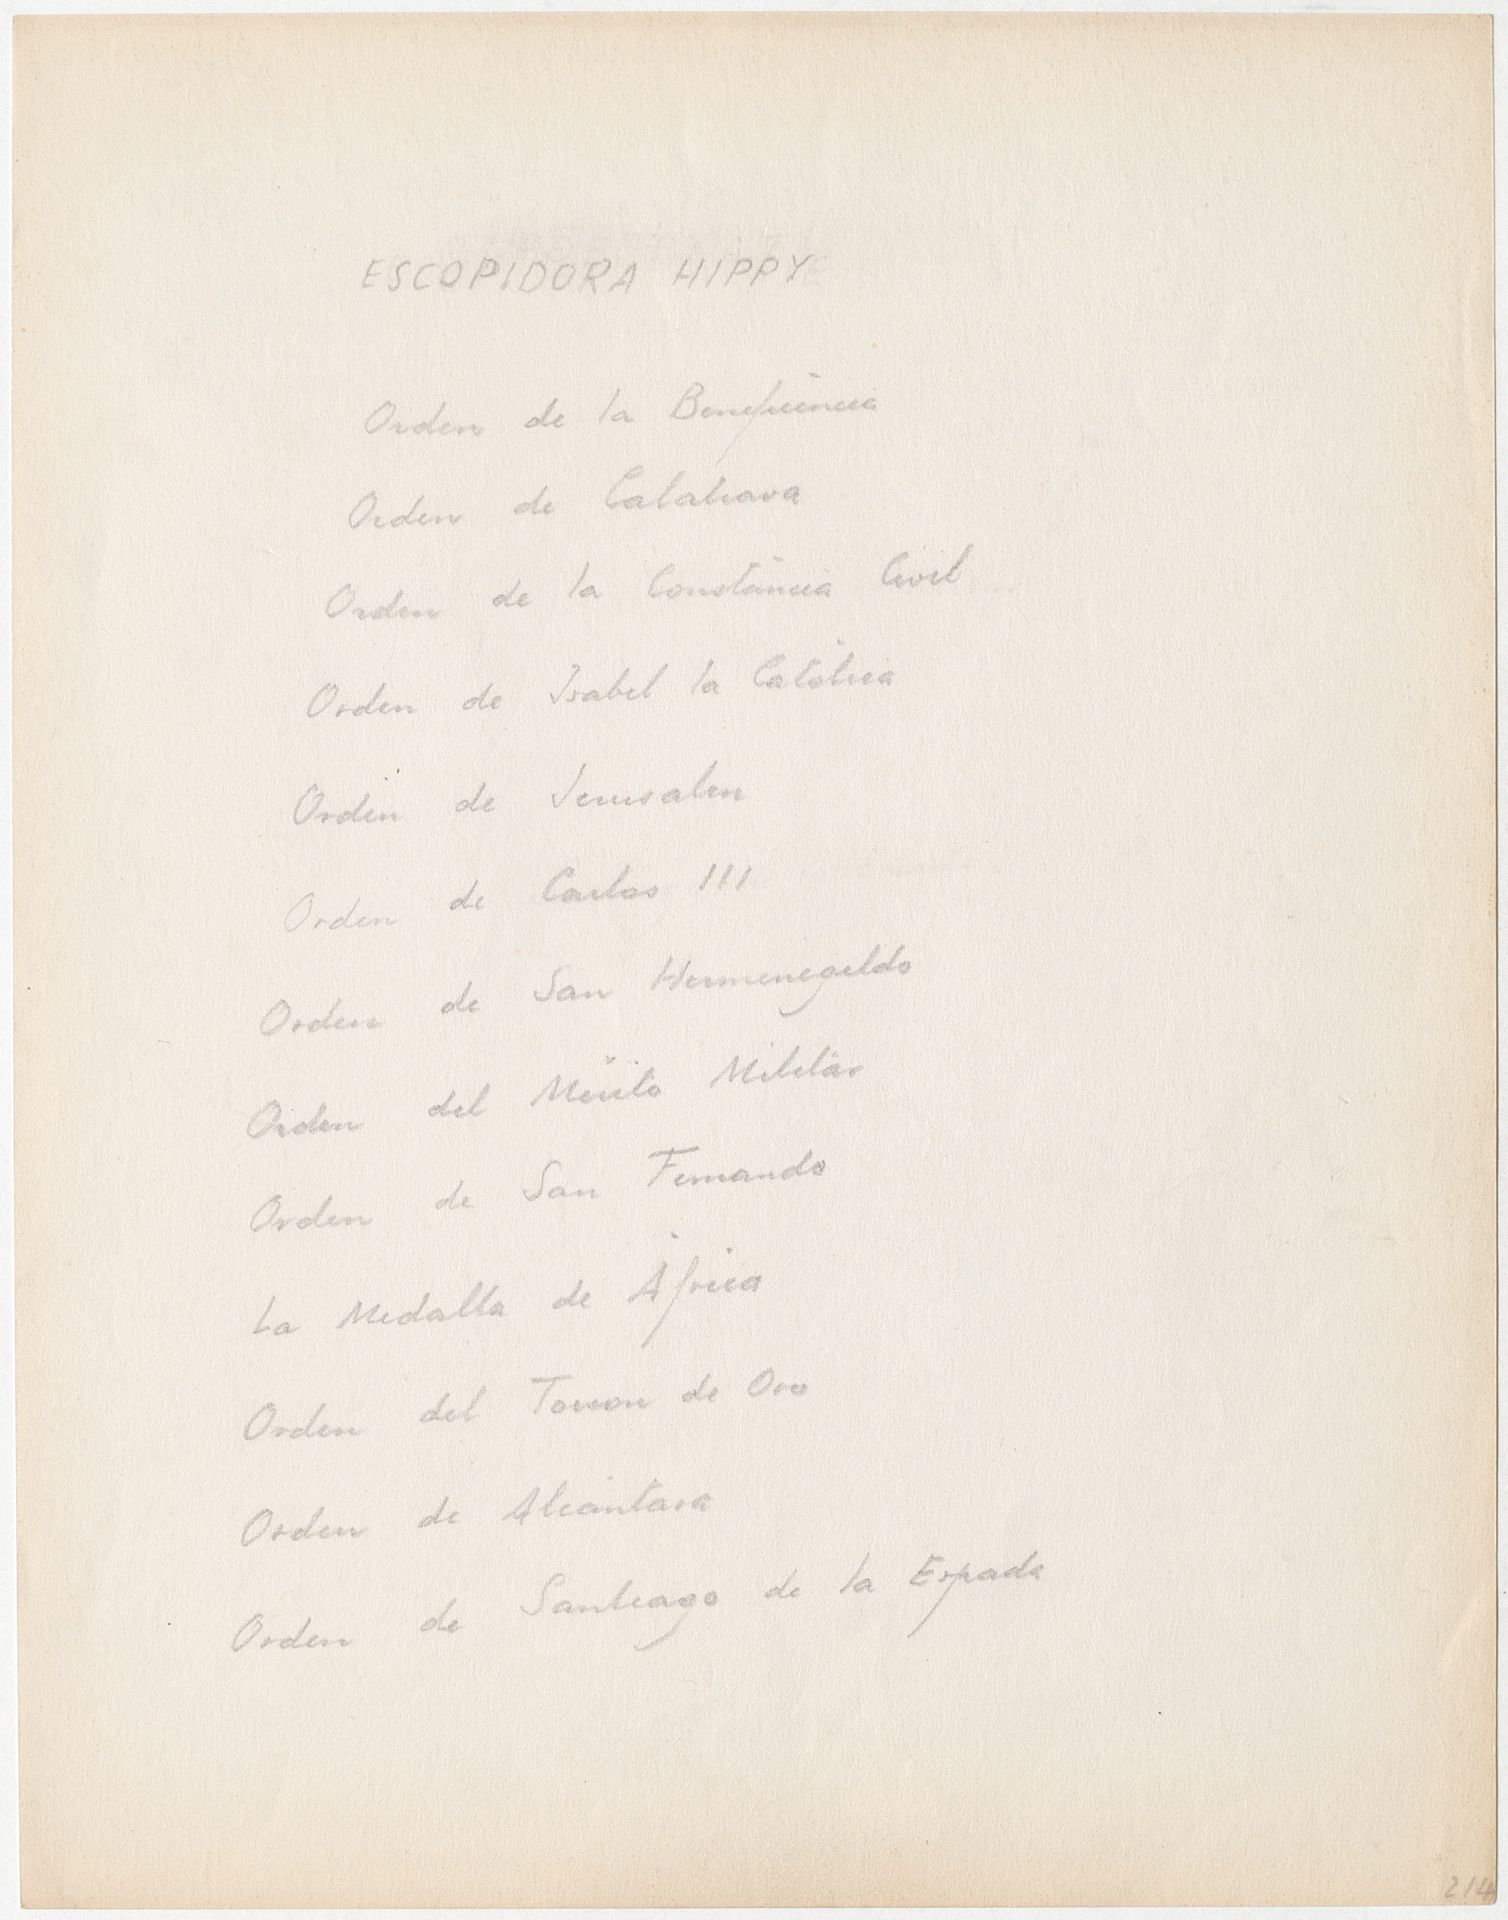 ESCOPIDORA HIPPY
Orden de la Beneficència
Orden de Calatrava
Orden de la Constància Civil
Orden de Isabel la Catòlica
Orden de Jerusalen
Orden de Carlos III
Orden de San Hermenegildo
Orden del Mèrito Militar
Orden de San Fernando
La Medalla de Àfrica
Orden del Toison de Oro
Orden de Alcàntara
Orden de Santiago de la Espada
214